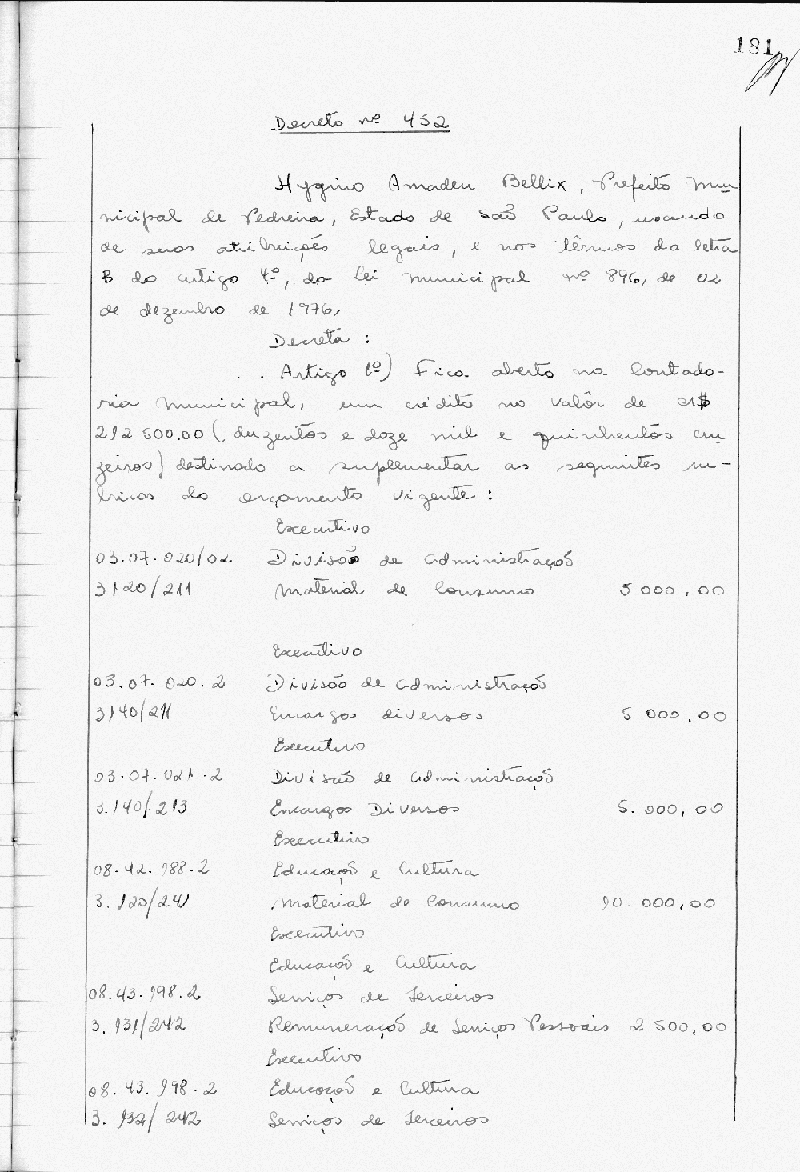 181
Decreto nº 452
Hygino Amadeu Bellix, Prefeito Mu-
nicipal de Pedreira, Estado de São Paulo, usando
de suas atribuições legais, e nos têrmos da letra
B do artigo 4º, da lei municipal nº 896, de 02
de dezembro de 1976,
Decreta:
Artigo 1º) Fica aberto na Contado-
ria Municipal, um crédito no valôr de CR$
212 500,00 (duzentos e doze mil e quinhentos cru-
zeiros) destinado a suplementar as seguintes ru-
bricas do orçamento vigente:
Executivo
03.07.020/02. Divisão de administração
3120/211 Material de Consumo 5 000,00
Executivo
03.07.020.2 Divisão de administração
3140/211 Encargos diversos 5 000,00
Executivo
03.07.021.2 Divisão de administração
3.140/213 Encargos Diversos 5.000,00
Executivo
08.42.188.2 Educação e Cultura
3.120/241 Material de Consumo 10.000,00
Executivo
Educação e Cultura
08.43.198.2 Serviços de Terceiros
3.131/242 Remuneração de Serviços Pessoais 2 500,00
Executivo
08.43.198.2 Educação e Cultura
3.132/242 Serviços de Terceiros